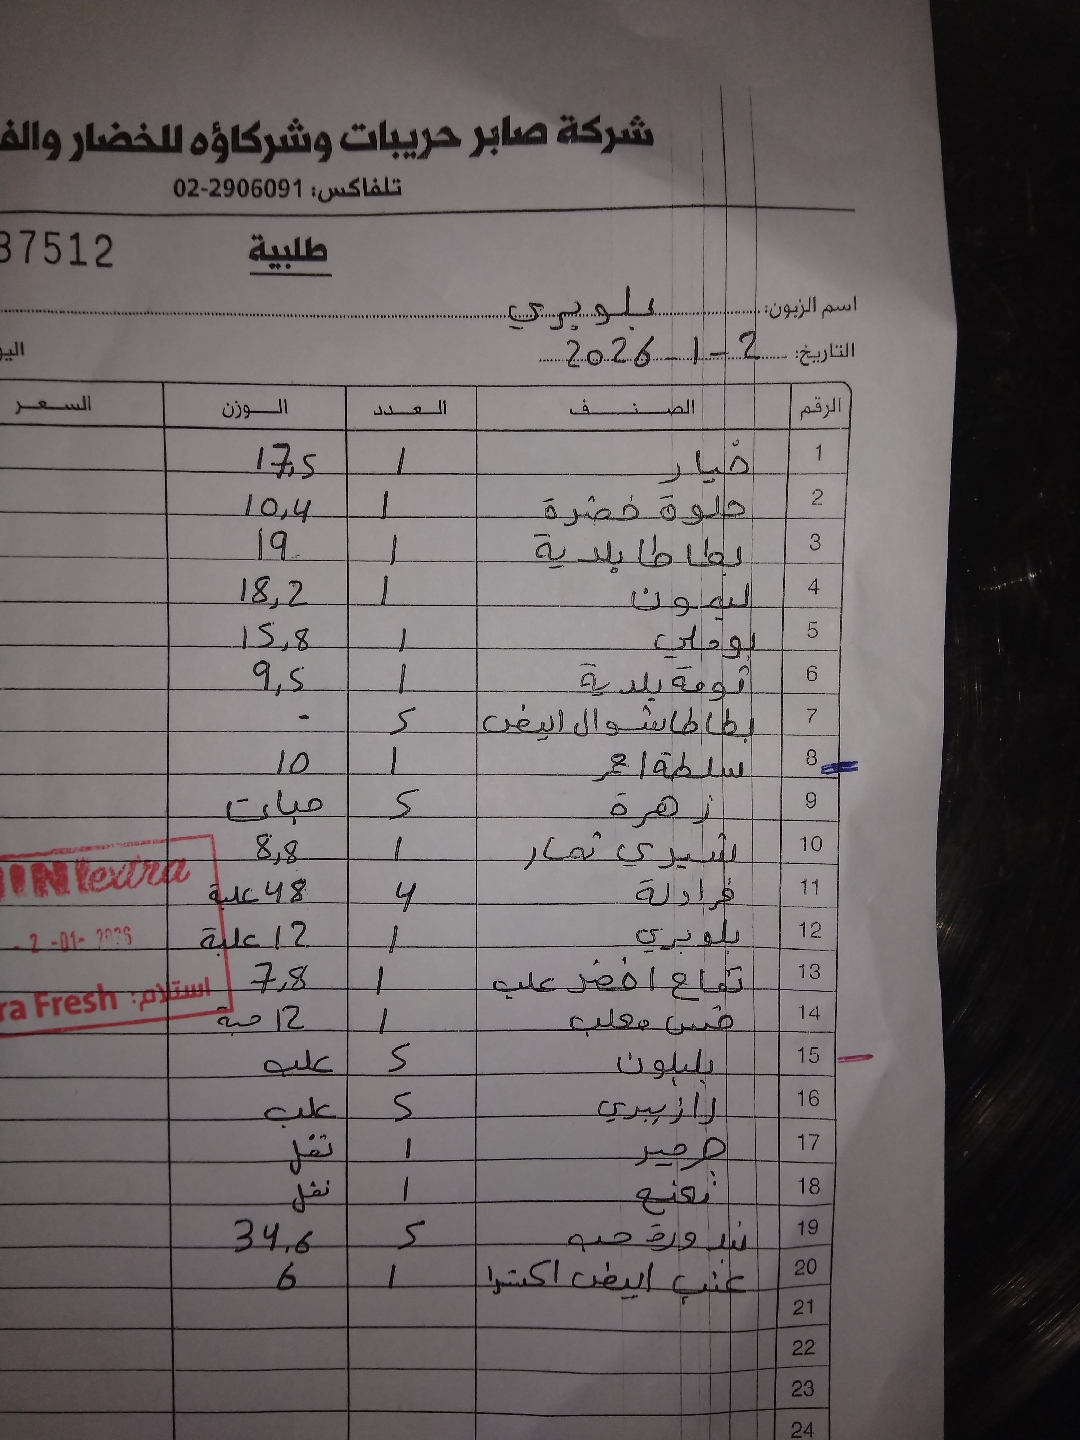 شركة صابر حريبات وشركاؤه للخضار والف
تلفاكس: 02-2906091
طلبية
37512
اسم الزبون: بلوبري
التاريخ: 2-1-2026
اليو
الرقم الصنف العدد الوزن السعر
1 خيار 1 17,5
2 حلوة خضرة 1 10,4
3 بطاطا بلدية 1 19
4 ليمون 1 18,2
5 بوملي 1 15,8
6 ثومة بلدية 1 9,5
7 بطاطا شوال ابيض 5 -
8 سلطة احمر 1 10
9 زهرة 5 حبات
10 شيري تمار 1 8,8
11 فراولة 4 48 علبة
12 بلوبري 1 12 علبة
13 تفاح اخضر علب 1 7,8
14 خس معلب 1 12 حبة
15 بلبلون 5 علب
16 رازبيري 5 علب
17 جرجير 1 نفل
18 نعنع 1 نفل
19 بندورة حبه 5 34,6
20 عنب ابيض اكسترا 1 6
21
22
23
24
INIextra
-2-01-2026
استلام: ra Fresh